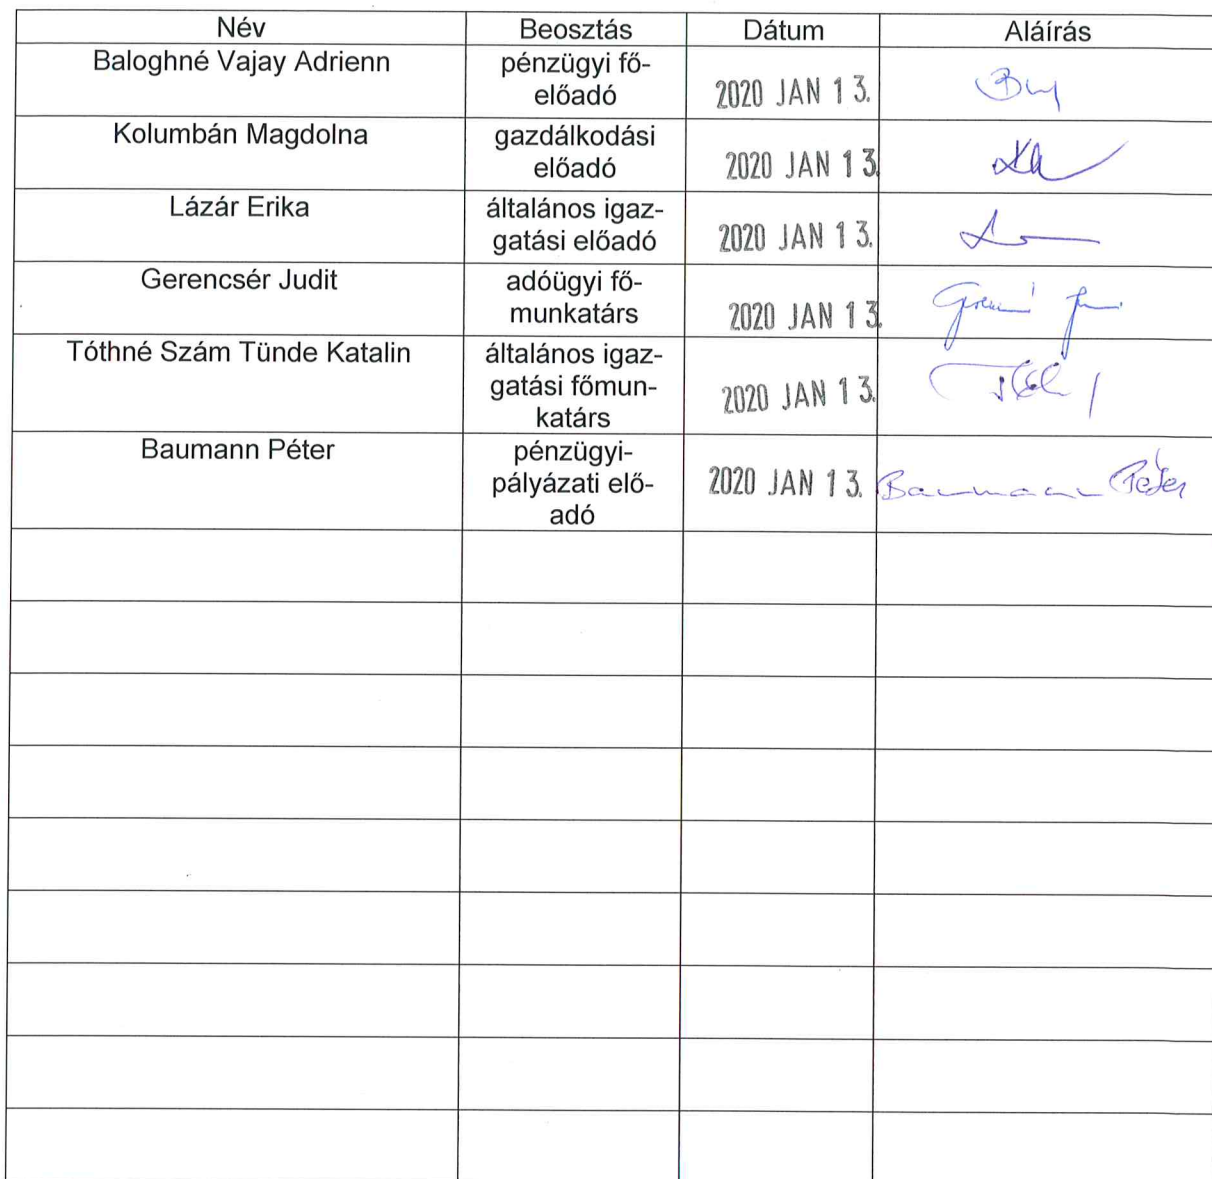 Név Beosztás Dátum Aláírás
Baloghné Vajay Adrienn pénzügyi fő-
előadó 2020 JAN 13.
Kolumbán Magdolna gazdálkodási
előadó 2020 JAN 13.
Lázár Erika általános igaz-
gatási előadó 2020 JAN 13.
Gerencsér Judit adóügyi fő-
munkatárs 2020 JAN 13.
Tóthné Szám Tünde Katalin általános igaz-
gatási főmun-
katárs 2020 JAN 13.
Baumann Péter pénzügyi-
pályázati elő-
adó 2020 JAN 13. Baumann Péter